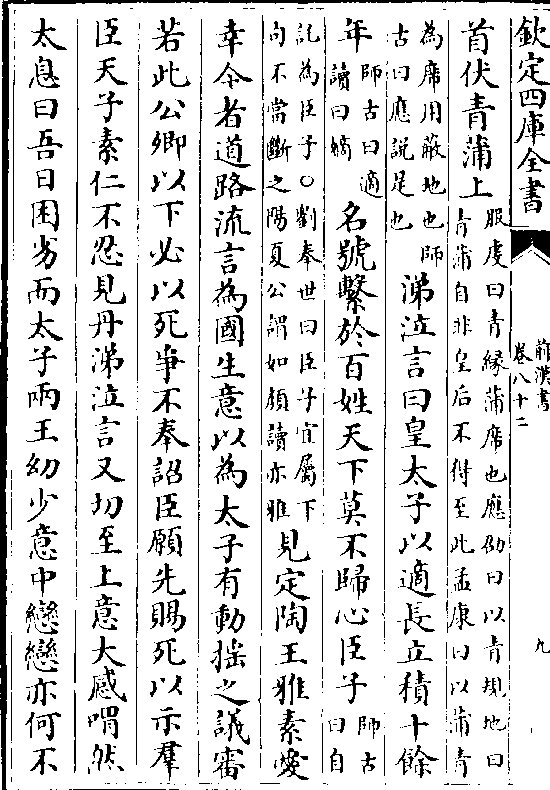 欽定四庫全書
前漢書
卷八十二
九
首伏青蒲上服虔曰青縁蒲席也應劭曰以青規地曰青蒲自非皇后不得至此孟康曰以蒲青
為席用蔽地也師古曰應說是也涕泣言曰皇太子以適長立積十餘
年師古曰適讀曰嫡名號繫於百姓天下莫不歸心臣子師古曰自
託為臣子○劉奉世曰臣子宜屬下句不當斷之陽夏公謂如顔讀亦雅見定陶王雅素愛
幸今者道路流言為國生意以為太子有動揺之議審
若此公卿以下必以死爭不奉詔臣願先賜死以示羣
臣天子素仁不忍見丹涕泣言又切至上意大感喟然
太息曰吾日困劣而太子兩王幼少意中戀戀亦何不